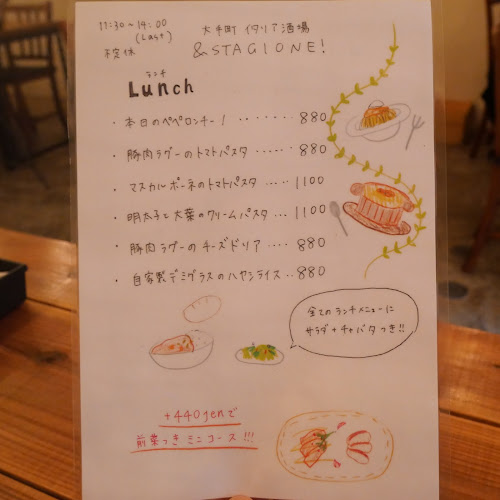 11:30～14:00
(Last)
不定休
大手町 イタリア酒場
&STAGIONE!
ランチ
Lunch
・本日のペペロンチーノ ・・・・・・・ 880
・豚肉ラグーのトマトパスタ ・・・・・ 880
・マスカルポーネのトマトパスタ ・・・・ 1100
・明太子と大葉のクリームパスタ ・・・ 1100
・豚肉ラグーのチーズドリア ・・・・・ 880
・自家製デミグラスのハヤシライス ・・ 880
全てのランチメニューに
サラダ+チャバタつき!!
+440yenで
前菜つきミニコース!!!